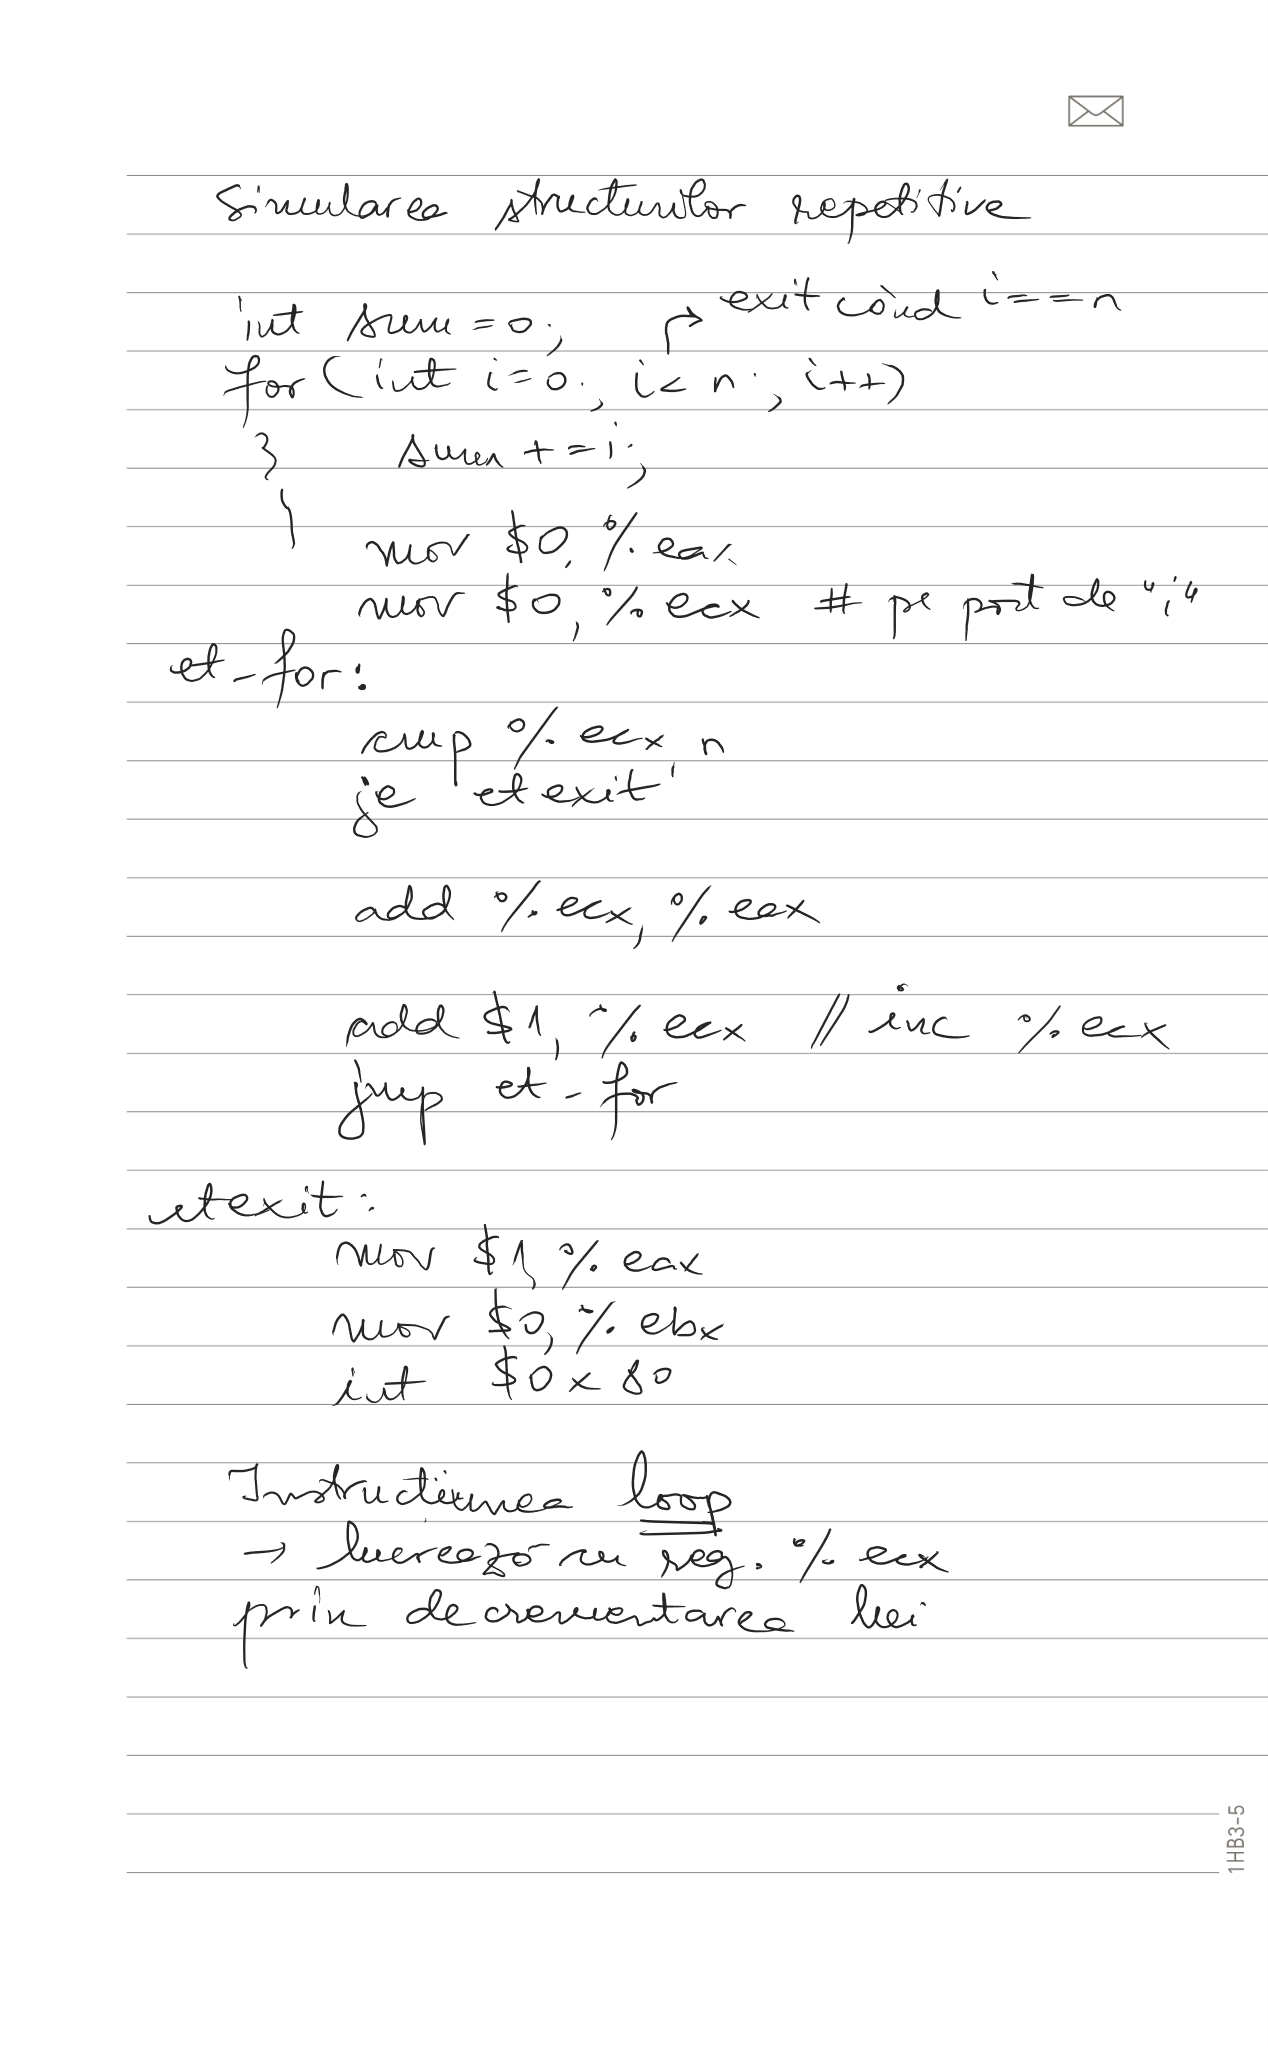 Simularea structurilor repetitive
int sum = 0;
exit cond i==n
for (int i=0; i< n; i++)
{ sum +=i;
}
mov $0, %eax
mov $0, %ecx # pe post de "i"
et-for:
cmp %ecx, n
je etexit
add %ecx, %eax
add $1, %ecx // inc %ecx
jmp et-for
etexit:
mov $1, %eax
mov $0, %ebx
int $0x80
Instructiunea loop
→ lucrează cu reg. %ecx
prin decrementarea lui
1HB3-5